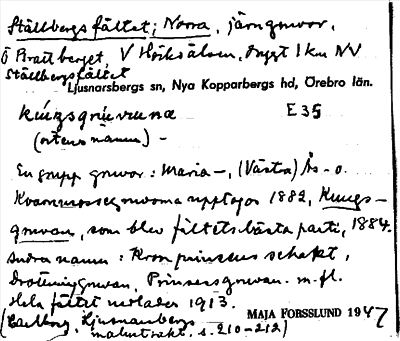 Ställbergs fältet, Norra, järngruvor.
Ö Brattberget, V Hörksälven, drygt 1 km NV
Ställbergsfältet
Ljusnarsbergs sn, Nya Kopparbergs hd, Örebro län.
kuŋsgruvuna E 35
(ortens namn) –
En grupp gruvor: Maria–, (Västra) Ås- o.
Kvarnmossegruvorna upptogos 1882, Kungs-
gruvan, som blev fältets bästa parti, 1884.
Andra namn: Kronprinsens schakt,
Drottninggruvan, Prinsessgruvan m.fl.
Hela fältet nedlades 1913.
(Carlborg, Ljusnarsbergs
malmtrakt, s. 210-212)
MAJA FORSSLUND 1947